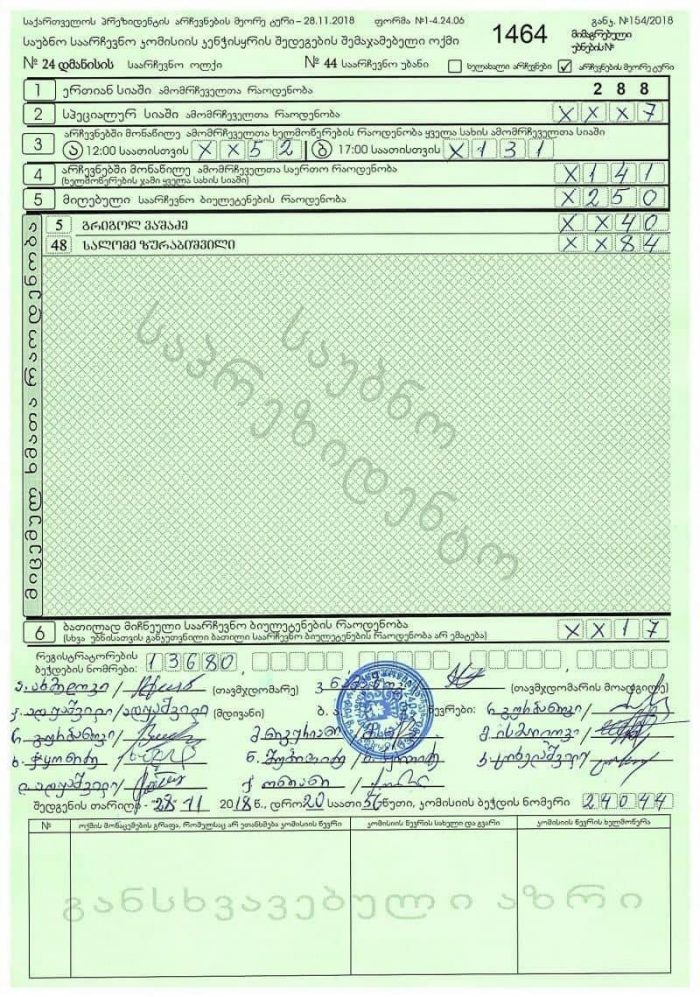 საქართველოს პრეზიდენტის არჩევნების მეორე ტური – 28.11.2018 ფორმა №1-4.24.06 განკ. №154/2018
საუბნო საარჩევნო კომისიის კენჭისყრის შედეგების შემაჯამებელი ოქმი 1464 მიმაგრებული უბნების№
№ 24 დმანისის საარჩევნო ოლქი № 44 საარჩევნო უბანი ხელახალი არჩევნები არჩევნების მეორე ტური
1 ერთიან სიაში ამომრჩეველთა რაოდენობა 288
2 სპეციალურ სიაში ამომრჩეველთა რაოდენობა XXX7
3 არჩევნებში მონაწილე ამომრჩეველთა ხელმოწერების რაოდენობა ყველა სახის ამომრჩეველთა სიაში
ა 12:00 საათისთვის XX52 ბ 17:00 საათისთვის X131
4 არჩევნებში მონაწილე ამომრჩეველთა საერთო რაოდენობა X141
(ხელმოწერების ჯამი ყველა სახის სიაში)
5 მიღებული საარჩევნო ბიულეტენების რაოდენობა X250
მიცემულ ხმათა რაოდენობა
5 გრიგოლ ვაშაძე XX40
48 სალომე ზურაბიშვილი XX84
საუბნო
საპრეზიდენტო
6 ბათილად მიჩნეული საარჩევნო ბიულეტენების რაოდენობა XX17
(სხვა უბნისათვის განკუთვნილი ბათილი საარჩევნო ბიულეტენების რაოდენობა არ ემატება)
რეგისტრატორების
ბეჭდების ნომრები: 13680
(თავმჯდომარე) (თავმჯდომარის მოადგილე)
(მდივანი)
შედგენის თარიღი - 28.11 2018 წ., დრო 20 საათი 56 წუთი, კომისიის ბეჭდის ნომერი 24044
№ ოქმის მონაცემების გრაფა, რომელსაც არ ეთანხმება კომისიის წევრი კომისიის წევრის სახელი და გვარი კომისიის წევრის ხელმოწერა
განსხვავებული აზრი